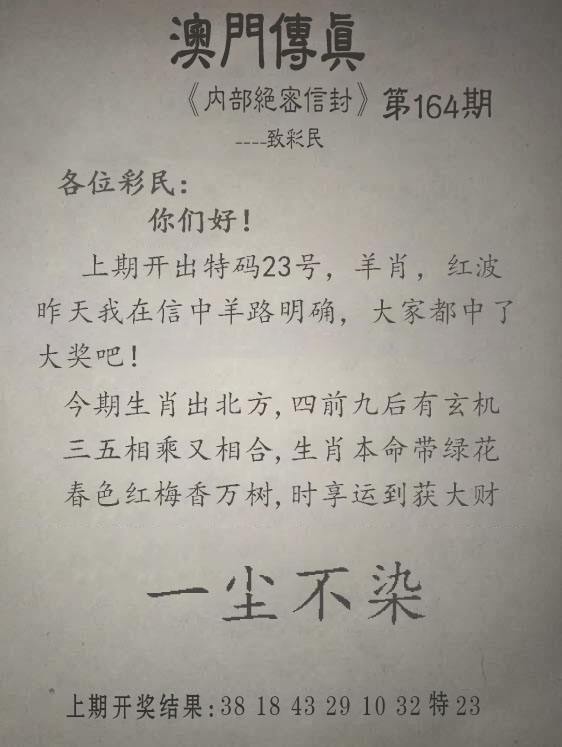 澳門傳眞
《内部絕密信封》第164期
----致彩民
各位彩民：
你们好！
上期开出特码23号，羊肖，红波
昨天我在信中羊路明确，大家都中了
大奖吧！
今期生肖出北方，四前九后有玄机
三五相乘又相合，生肖本命带绿花
春色红梅香万树，时享运到获大财
一尘不染
上期开奖结果：38 18 43 29 10 32 特 23